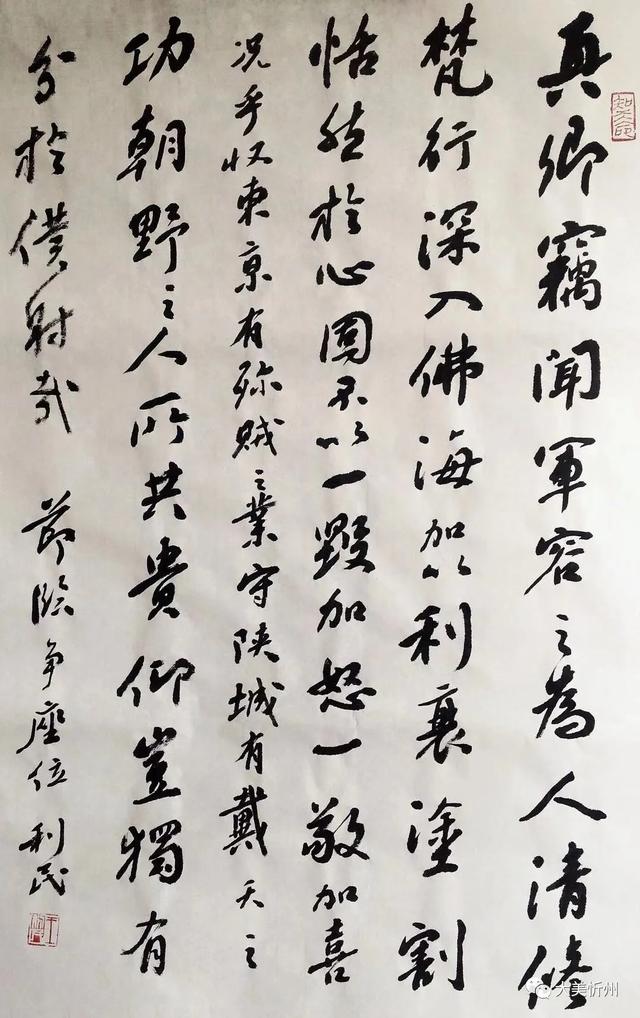 知天命
真卿竊聞軍容之為人清修
梵行深入佛海加以利衰塗割
恬然於心固不以一毀加怒一敬加喜
況乎收東京有殄賊之業守陝城有戴天之
功朝野之人所共貴仰豈獨有
分於僕射哉 節臨争座位 利民
大美忻州